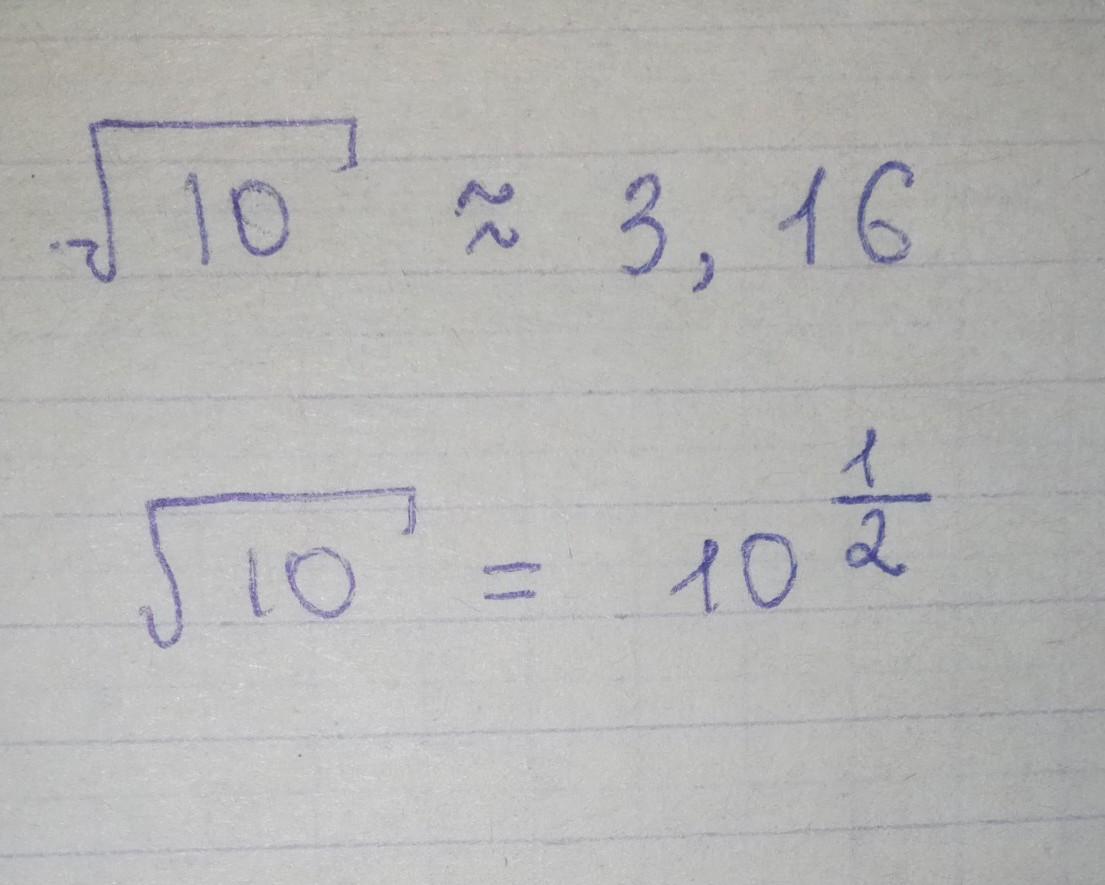 √10 ≈ 3,16
√10 = 10^(1/2)